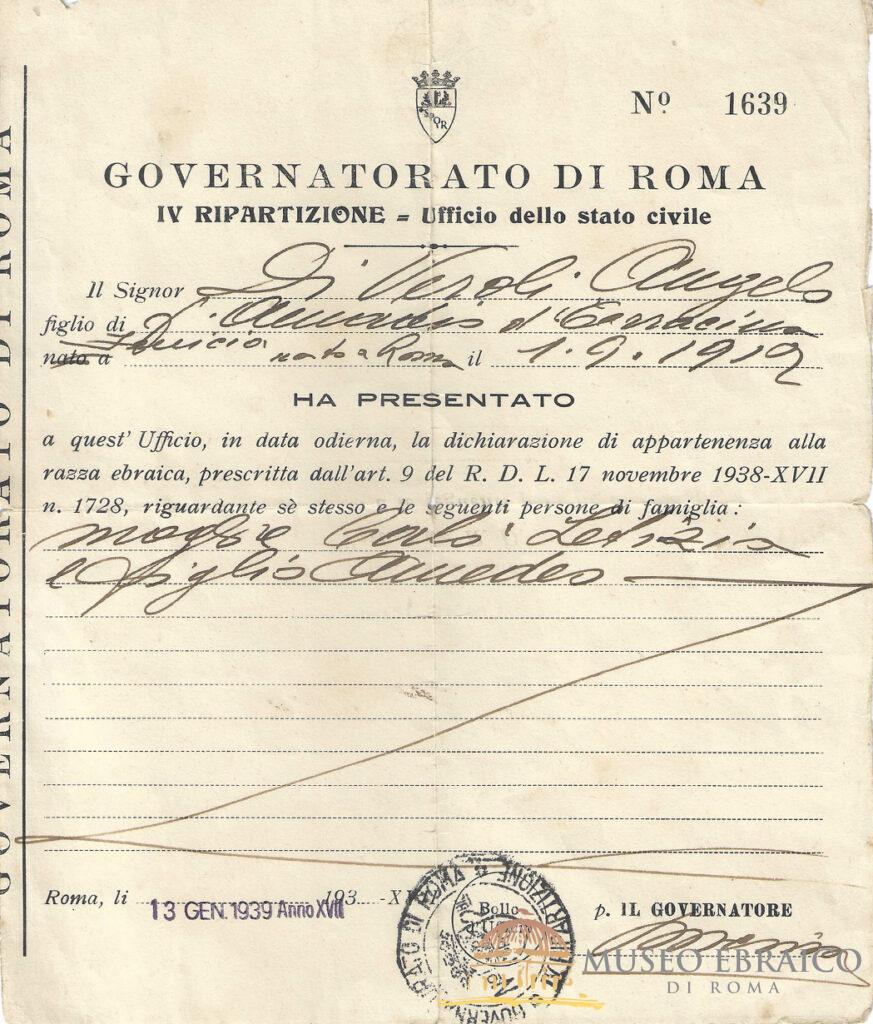 SPQR
Nº 1639
GOVERNATORATO DI ROMA
IV RIPARTIZIONE = Ufficio dello stato civile
Il Signor Di Veroli Angelo
figlio di d'
nato a nato a Roma il 1.9.1912
HA PRESENTATO
a quest' Ufficio, in data odierna, la dichiarazione di appartenenza alla
razza ebraica, prescritta dall'art. 9 del R. D. L. 17 novembre 1938-XVII
n. 1728, riguardante sè stesso e le seguenti persone di famiglia:
moglie Calò Letizia
e figlio Amedeo
Roma, li 193 -XV
13 GEN. 1939 Anno XVII
p. IL GOVERNATORE
Bollo
MUSEO EBRAICO
DI ROMA
GOVERNATORATO DI ROMA